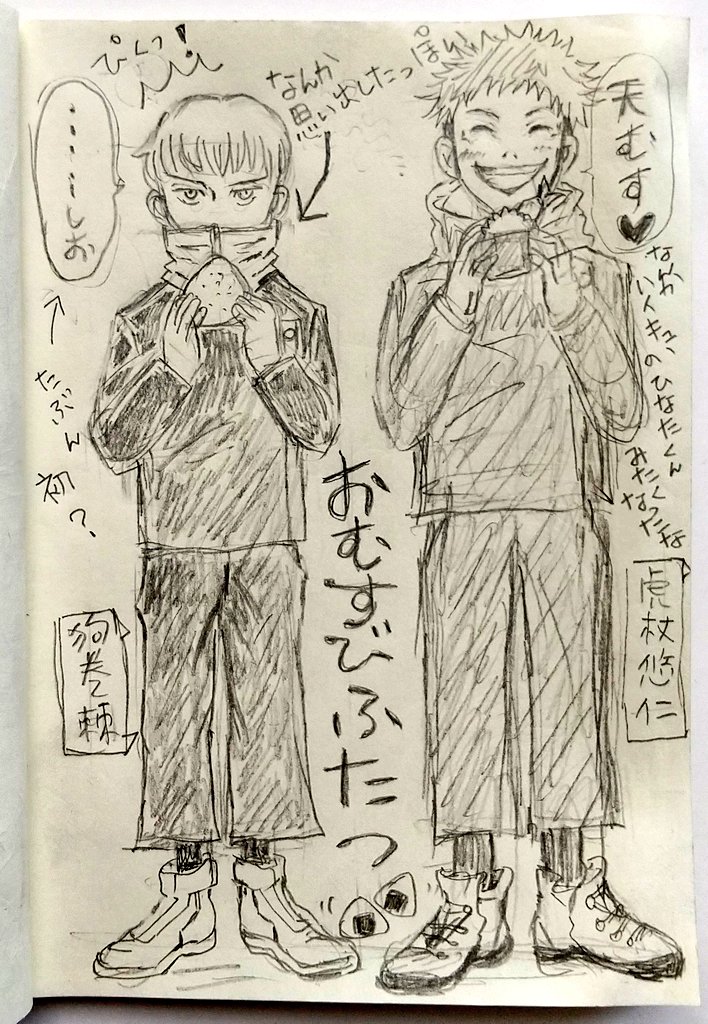 天むす♥
なんか
ハイキューのひなたくん
みたく
なったな
虎杖悠仁
なんか
思い出したっ
ぴくっ!
……しお
たぶん初?
狗巻棘
おむすびふたつ